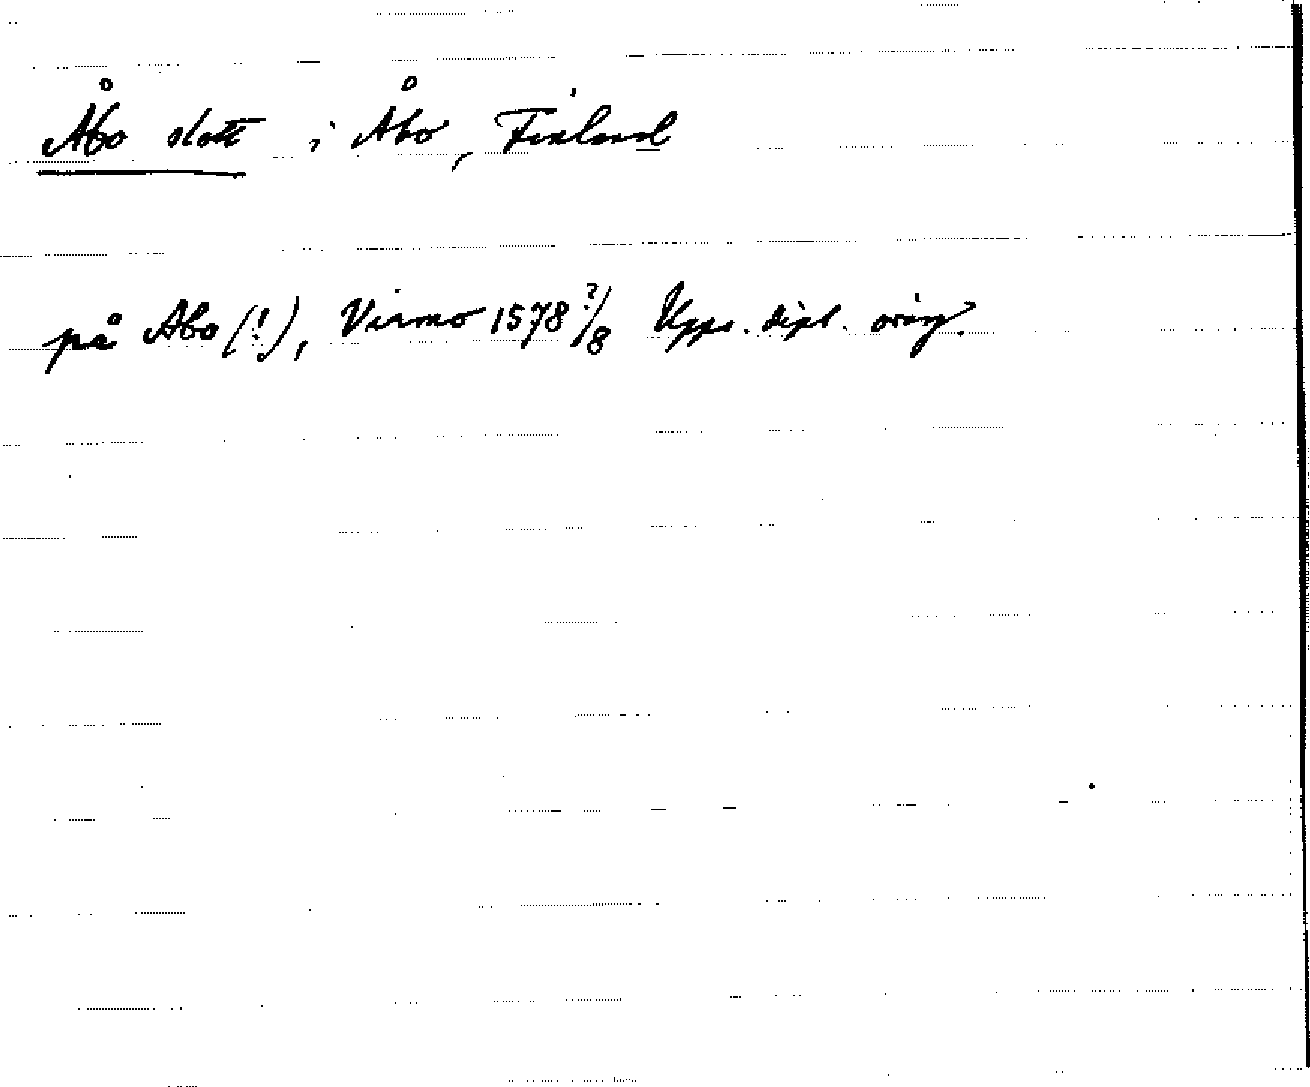 Åbo slott i Åbo, Finland
på Abo (!), Virmo 1578 ?/8 Upps. dipl. orig.